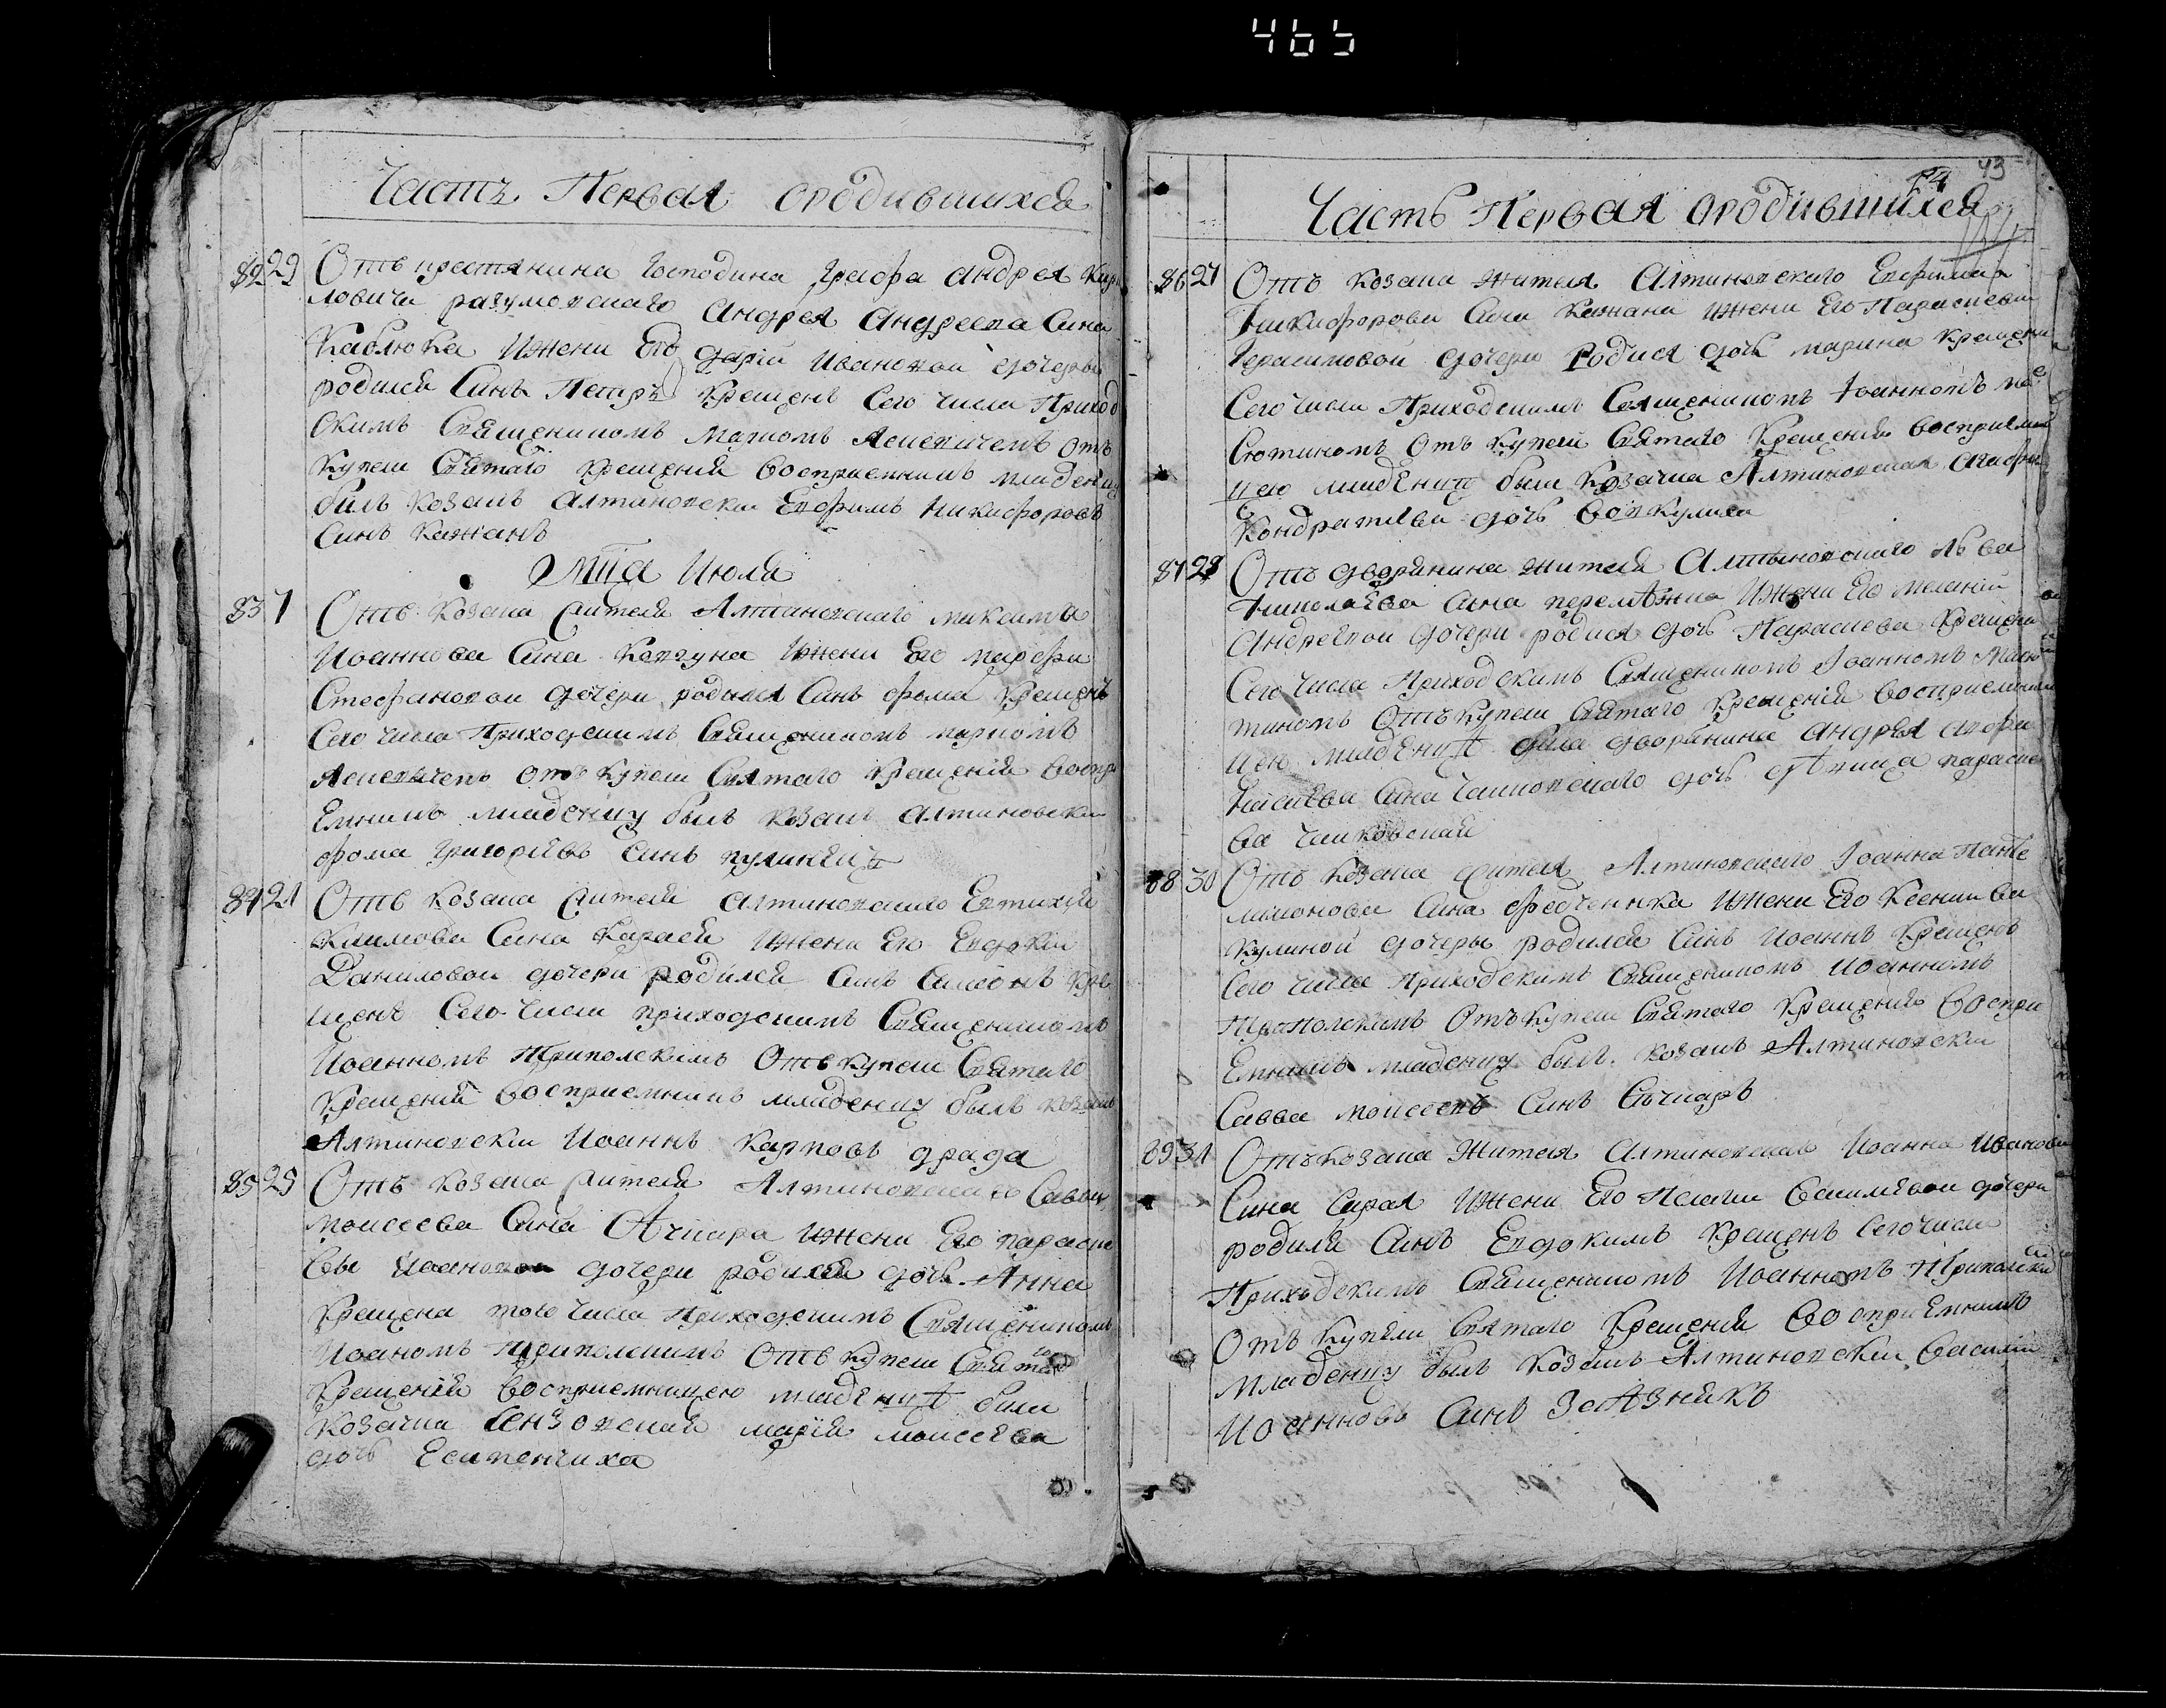 465
Часть Первая ородившихся
82 29 Отъ крестянина Господина Графа Андрея Кири
ловича разумовскаго Андрея Андреева Сина
Каблюка Ижени Его дарїи Ивановой дочеръи
родился Синъ Петръ Крещенъ Сего числа Приход
скимъ Священикомъ Маркомъ Ясневичемъ отъ
Купели Святаго Крещенїя Восприемникъ младенцу
билъ Козакъ Алтиновски Евфимъ Никифоровъ
Синъ Кажанъ
Мца Июля
83 1 Отъ Козака жителя Алтиновскаго Максима
Иоаннова Сина Ковгуна Ижени Его марфи
Стефановои дочери родился Синъ фома Крещенъ
Сего числа Приходскимъ Священикомъ маркомъ
Ясневичемъ отъ Купели Святаго Крещенїя Воспри
Емникъ младенцу былъ Козакъ Алтиновски
фома Григорїевъ Синъ
84 21 Отъ Козака жителя Алтиновскаго Евтихїя
Климова Сина Карася Ижени Его Евдокїи
Даниловои дочери родился Синъ Симеонъ Кре
щенъ Сего числа приходскимъ Священикомъ
Иоанномъ Триполскимъ Отъ Купели Святаго
Крещенїя Восприемникъ младенцу былъ Козакъ
Алтиновскїи Иоаннъ Карповъ драда
85 25 Отъ Козака жителя Алтиновскаго Саввы
Моисеева Сина Ижени Его параске
вы Иоанновои дочери родилася дочь Анна
Крещена того числа Приходскимъ Священикомъ
Иоаномъ Триполскимъ Отъ Купели Святаго
Крещенїя Восприемницею младенцѣ била
Козачка марїя моисеева
дочь Есипенчиха
43
Часть Первая ородившихся
86 27 Отъ Козака жителя Алтиновскаго Евфима
Никифорова Сина Кажана Ижени Его Параскеви
Герасимовой дочери Родися дочь марина Крещена
Сего числа Приходскимъ Священикомъ Иоанномъ
Отъ Купели Святаго Крещенїя Восприемни
цею младенцѣ была Козачка Алтиновская Агафи
Кондратиева дочь
87 28 Отъ дворянина жителя Алтыновскаго Льва
Николаева Сина Ижени Его Меланїи
Андреевои дочери родися дочь Параскева Крещена
Сего числа Приходскимъ Священикомъ Иоанномъ
Отъ Купели Святаго Крещенїя Восприемни
цею младенцѣ была дворянина Андрея Афа
насиева Сина Чаиковскаго дочь дѣвица параске
ва чаиковская
88 30 Отъ Козака жителя Алтиновскаго Иоанна Панте
лимонова Сина Федченка Ижени Его Ксении Ва
кулиной дочеры родился Синъ Иоаннъ Крещенъ
Сего числа Приходскимъ Священикомъ Иоанномъ
Триполскимъ Отъ Купели Святаго Крещенїя Воспри
Емникъ младенцу былъ Козакъ Алтиновски
Савва Моисеевъ Синъ
89 31 Отъ Козака Жителя Алтиновскаго Иоанна Иванова
Сина Сарая Ижени Его Пелагии дочери
родился Синъ Евдокимъ Крещенъ Сего числа
Приходскимъ Священикомъ Иоанномъ Триполски
Отъ Купели Святаго Крещенїя Восприемникъ
Младенцу былъ Козакъ Алтиновски Василїи
Иоанновъ Синъ